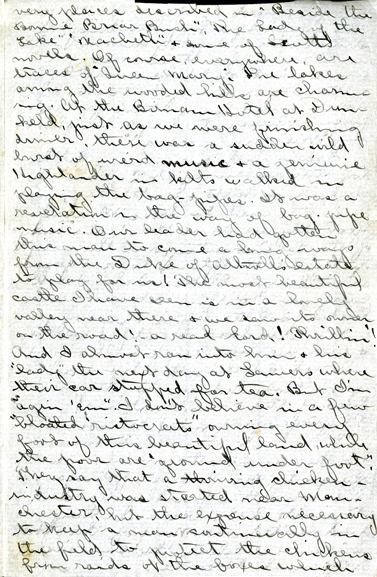 very places described in "Beside the
Bonnie Briar Bush", "The Lady of the
Lake" "Macbeth" & some of Scott's
novels. Of course, everywhere, are
traces of "Queen Mary". The lakes
among the wooded hills are charm-
ing. At the Birnam Hotel at Dun-
keld, just as we were finishing
dinner, there was a sudden wild
burst of weird music & a genuine
Highlander in kilts walked in
playing the bag-pipes. It was a
revelation in the way of bag pipe
music. Our leader had gotten
this man to come a long ways
from the Duke of Atholl's estate
to play for us! The most beautiful
castle I have seen is in a lovely
valley near there & we saw its owner
on the road! a real lord! Thrillin'!
And I almost ran into him & his
"lady" the next day at Lawers where
their car stopped for tea. But I'm
"agin 'em". I don't believe in a few
"bloated 'ristocrats" owning every
foot of this beautiful land, while
the poor are "ground under foot."
They say that a thriving chicken-
industry was started near Man-
chester, but the expense necessary
to keep a man continually in
the field, to protect the chickens
from raids of the foxes which